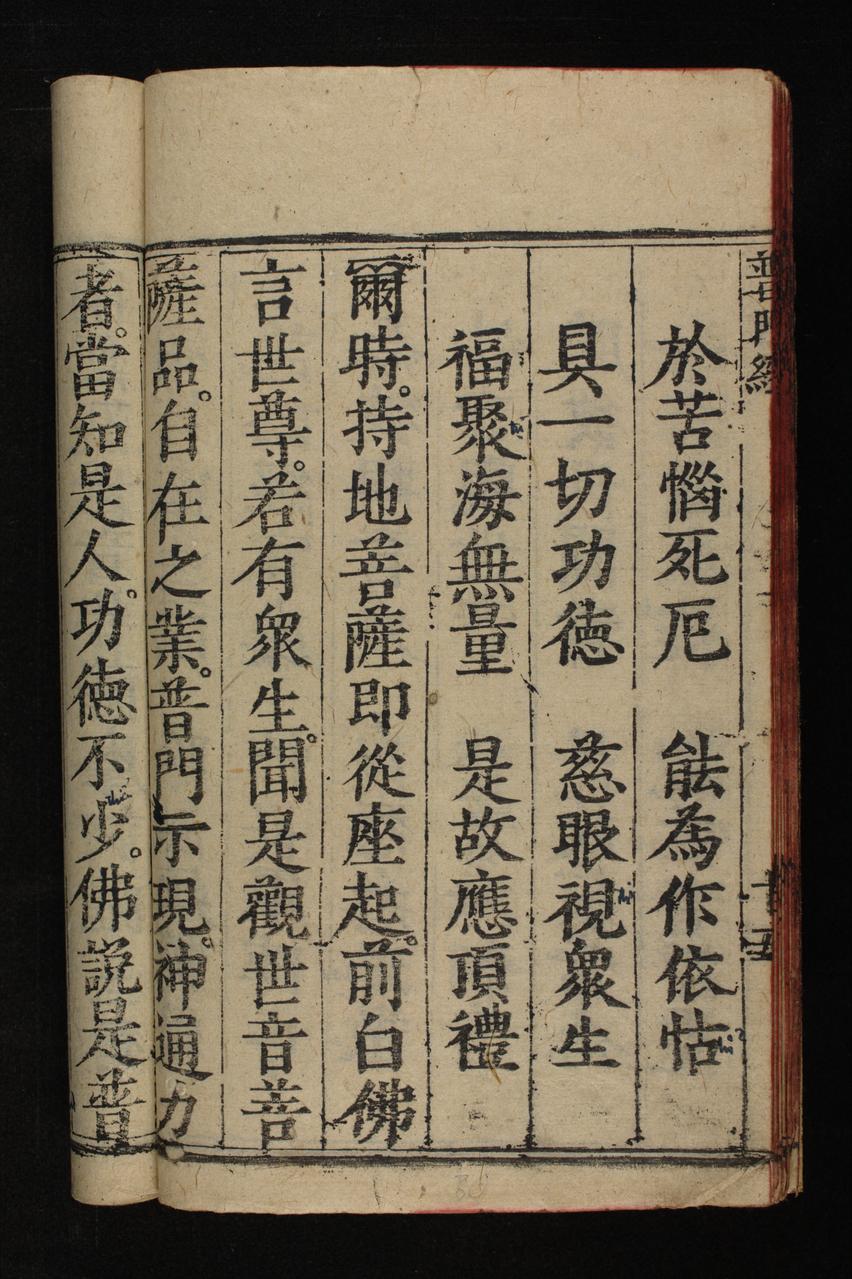 普門經 十五
於苦惱死厄 能為作依怙
具一切功德 慈眼視衆生
福聚海無量 是故應頂禮
爾時。持地菩薩即從座起。前白佛
言世尊。若有衆生。聞是觀世音菩
薩品。自在之業。普門示現。神通力
者。當知是人。功德不少。佛説是普